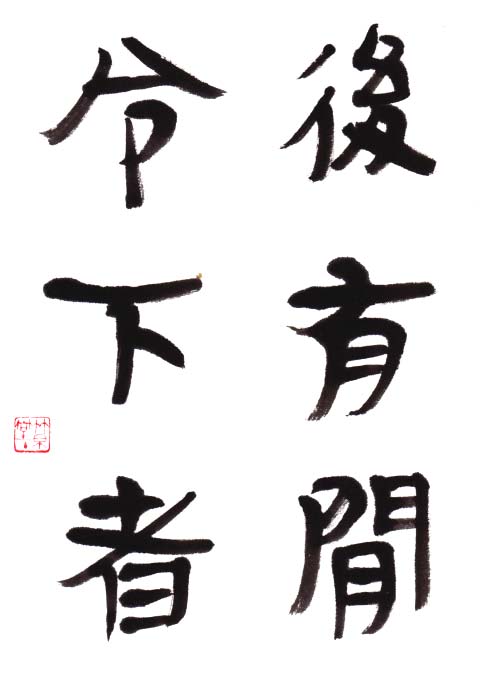 後有閒
令下者